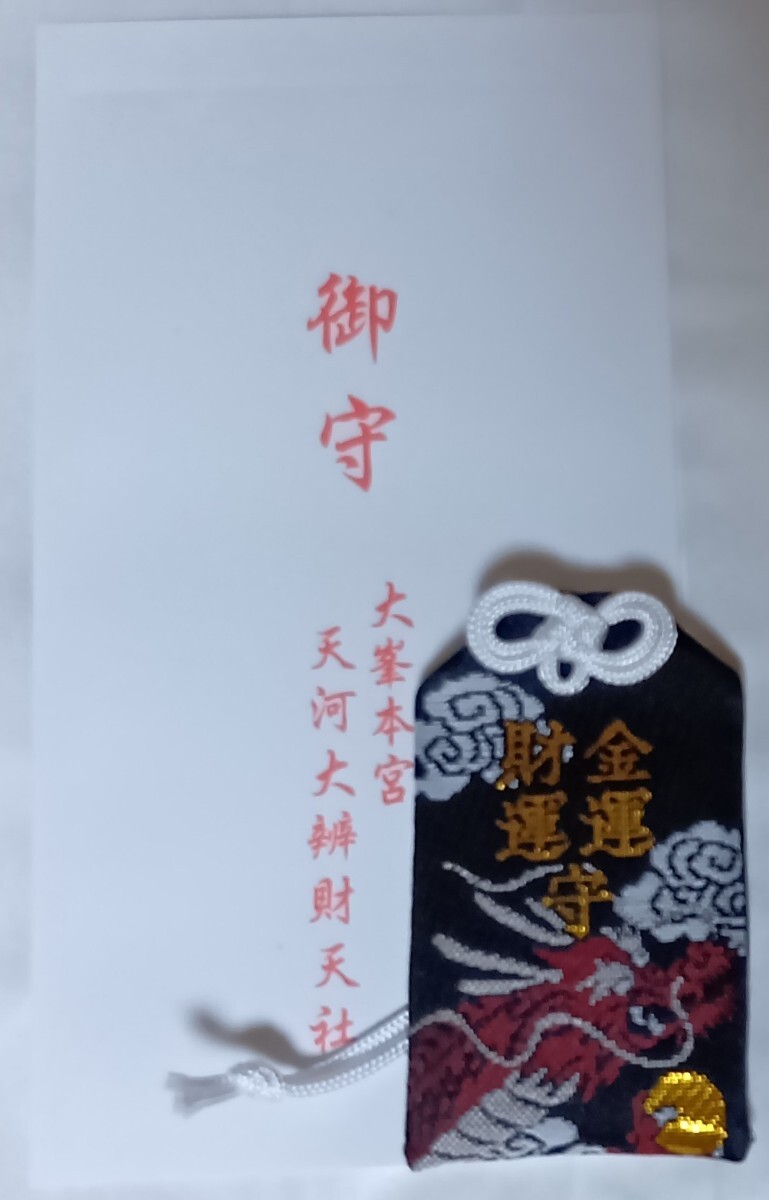 御守
大峯本宮
天河大辨財天社
金運
財運
守